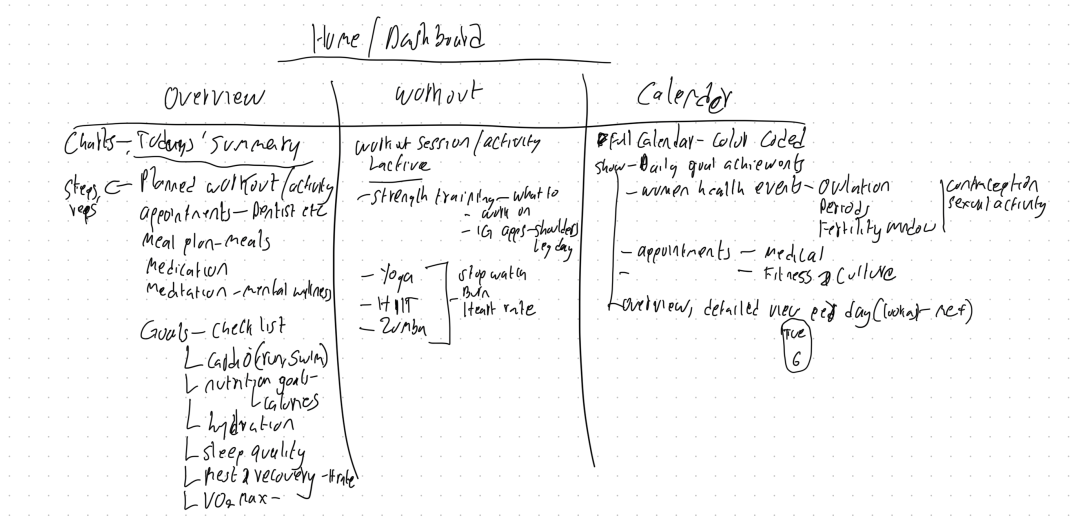 Home/Dashboard
Overview
Workout
Calendar
Charts - Todays' Summary
Steps, reps
Planned workout/activity
appointments - Dentist etc
Meal plan - meals
Medication
Meditation - mental wellness
Goals - check list
cardio (run, swim)
nutrition goals -
calories
hydration
sleep quality
Rest & recovery - Hrate
VO2 max -
workout session/activity
active
- strength training - what to
- work on
- IG apps - shoulders
leg day
- Yoga
- HIIT
- Zumba
stop watch
Burn
Heart rate
Full Calendar - Color Coded
show - Daily goal achievments
- women health events - Ovulation
Periods
Fertility window
contraception
sexual activity
- appointments - medical
- - Fitness & Culture
overview, detailed view per day (lookat - ref)
Tue
6